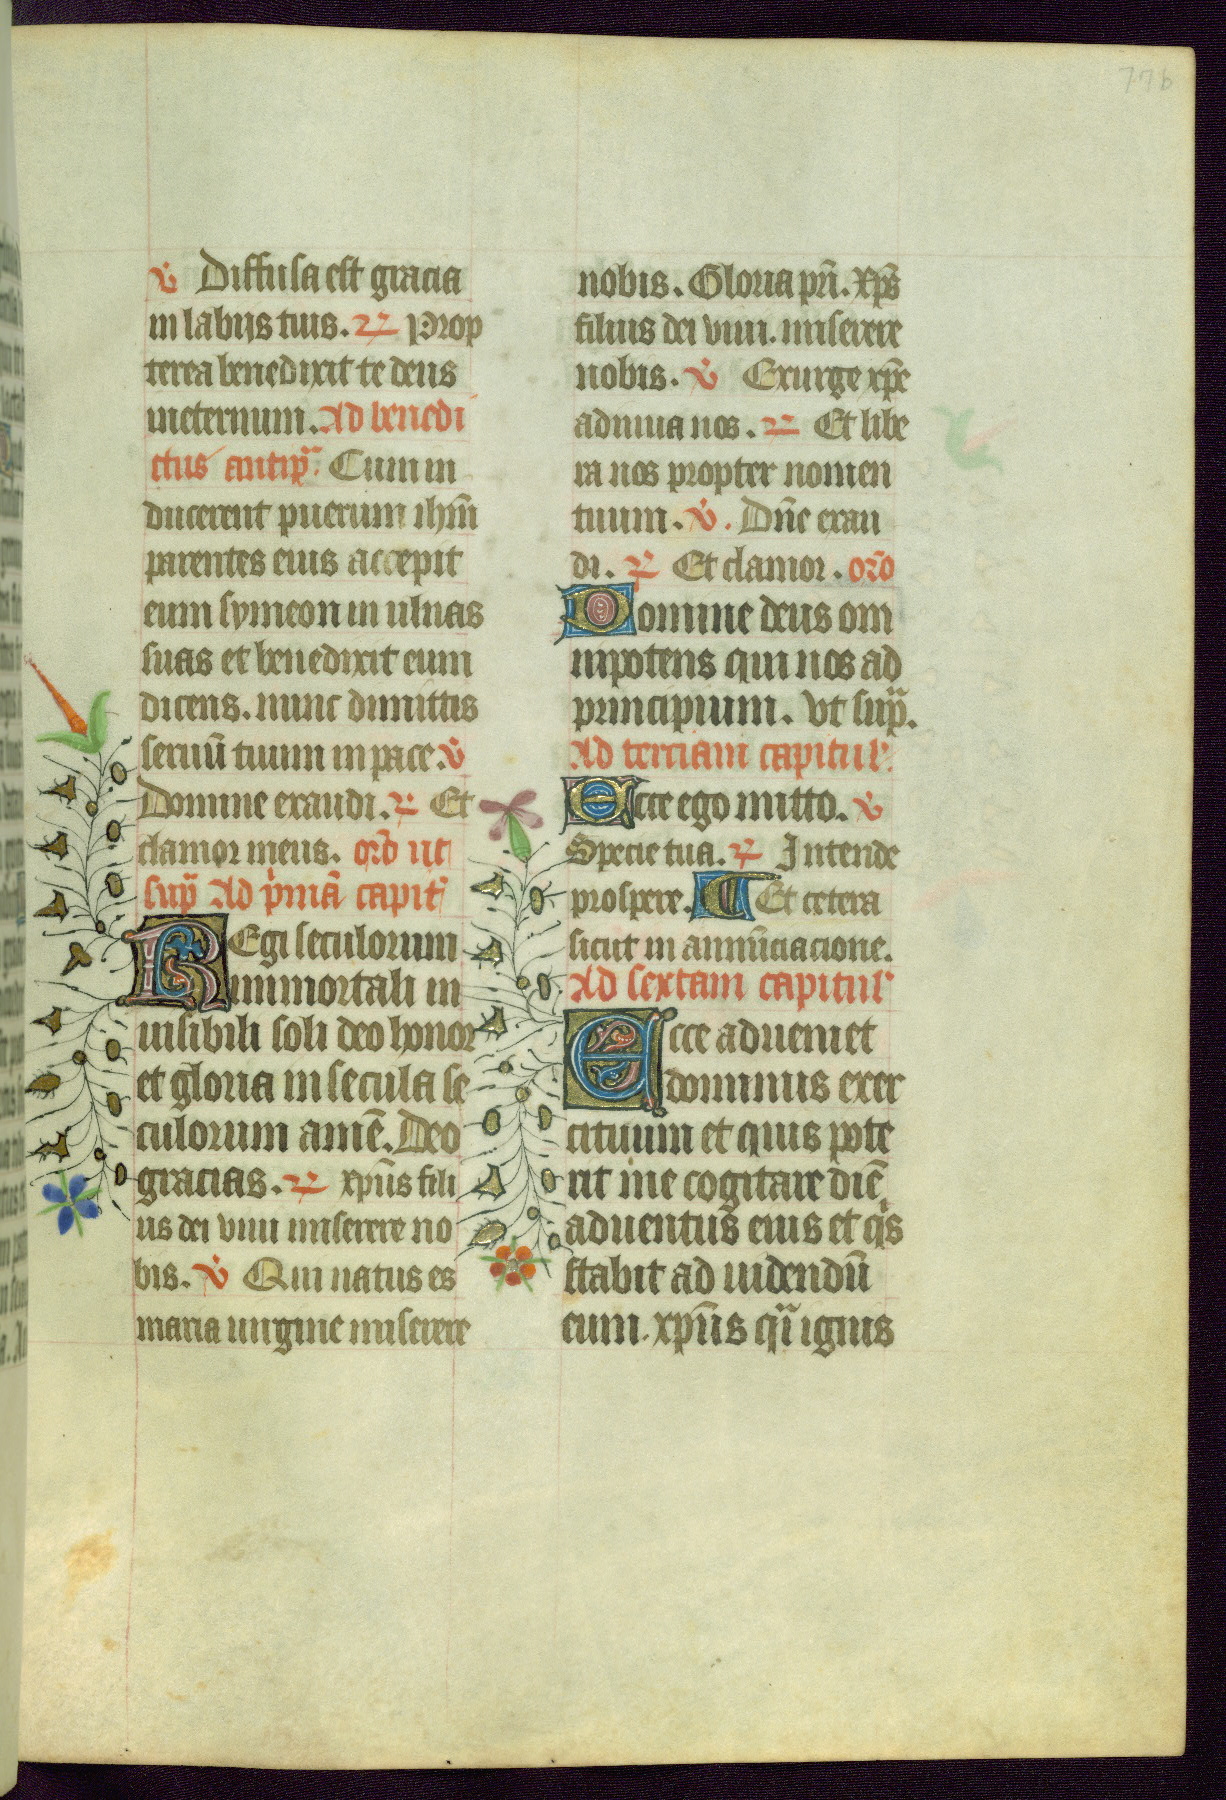 776
℣ Diffusa est gracia
in labijs tuis. ℟ Prop
terea benedixit te deus
ineternum. Ad benedi
ctus antip̄. Cum in
ducerent puerum ihm̄
parentes eius accepit
eum symeon in ulnas
suas et benedixit eum
dicens. nunc dimittis
seruū tuum in pace. ℣
Domine exaudi. ℟ Et
clamor meus. or̄o ut
sup̄ Ad p̄mā capit̄
Regi seculorum
immortali in
uisibili soli deo honor
et gloria in secula se
culorum amē. Deo
gracias. ℟ xp̄us fili
us dei viui miserere no
bis. ℣ Qui natus es
maria uirgine miserere
nobis. Gloria pr̄i. xp̄s
filius dei viui. miserere
nobis. ℣ Exurge xp̄e
adiuua nos. ℟ Et libe
ra nos propter nomen
tuum. ℣. Dn̄e exau
di. ℟ Et clamor. or̄o
Domine deus om
nipotens qui nos ad
principium. vt sup̄.
Ad terciam capitul'.
Ecce ego mitto. ℣
Specie tua. ℟ Intende
prospere. T Et cetera
sicut in annūciacione.
Ad sextam capitul'
Ecce adueniet
dominus exer
cituum et quis pote
rit ine cogitare diē
aduentus eius et qis
stabit ad uidendū
eum. xp̄us qr̄ ignis